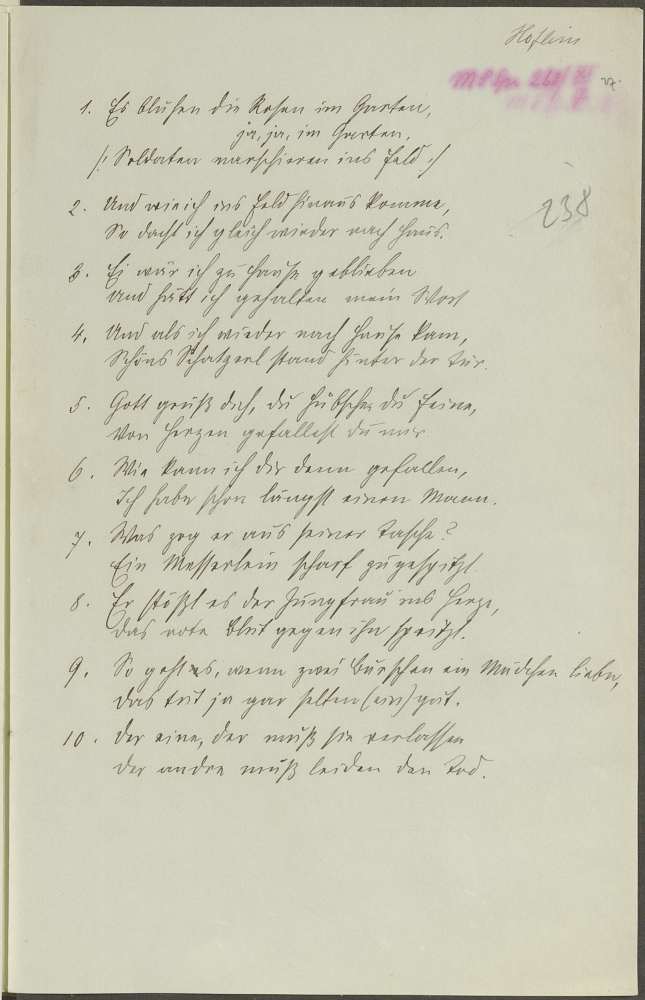 Höflein
M8 Gr. 268/XI 27.
238
1. Es blühen die Rosen im Garten,
ja, ja, im Garten,
/: Soldaten marschieren ins Feld :/
2. Und wie ich ins Feld hinaus komme,
So dacht ich gleich wieder nach Haus.
3. Ei wär ich zu Hause geblieben
und hätt ich gehalten mein Wort
4. Und als ich wieder nach Hause kam,
Schöns Schatzerl stand hinter der Tür.
5. Gott grüß dich, du hübsche, du Feine,
Von Herzen gefallest du mir
6. Wie kann ich dir denn gefallen,
Ich habe schon längst einen Mann.
7. Was zog er aus seiner Tasche?
Ein Messerlein scharf zugespitzt.
8. Er stößt es der Jungfrau ins Herze,
das rote Blut gegen ihn spritzt.
9. So geht es, wenn zwei Burschen ein Mädchen lieben,
das tut ja gar selten (ein) gut.
10. der eine, der muß sie verlassen
der andre muß leiden den Tod.